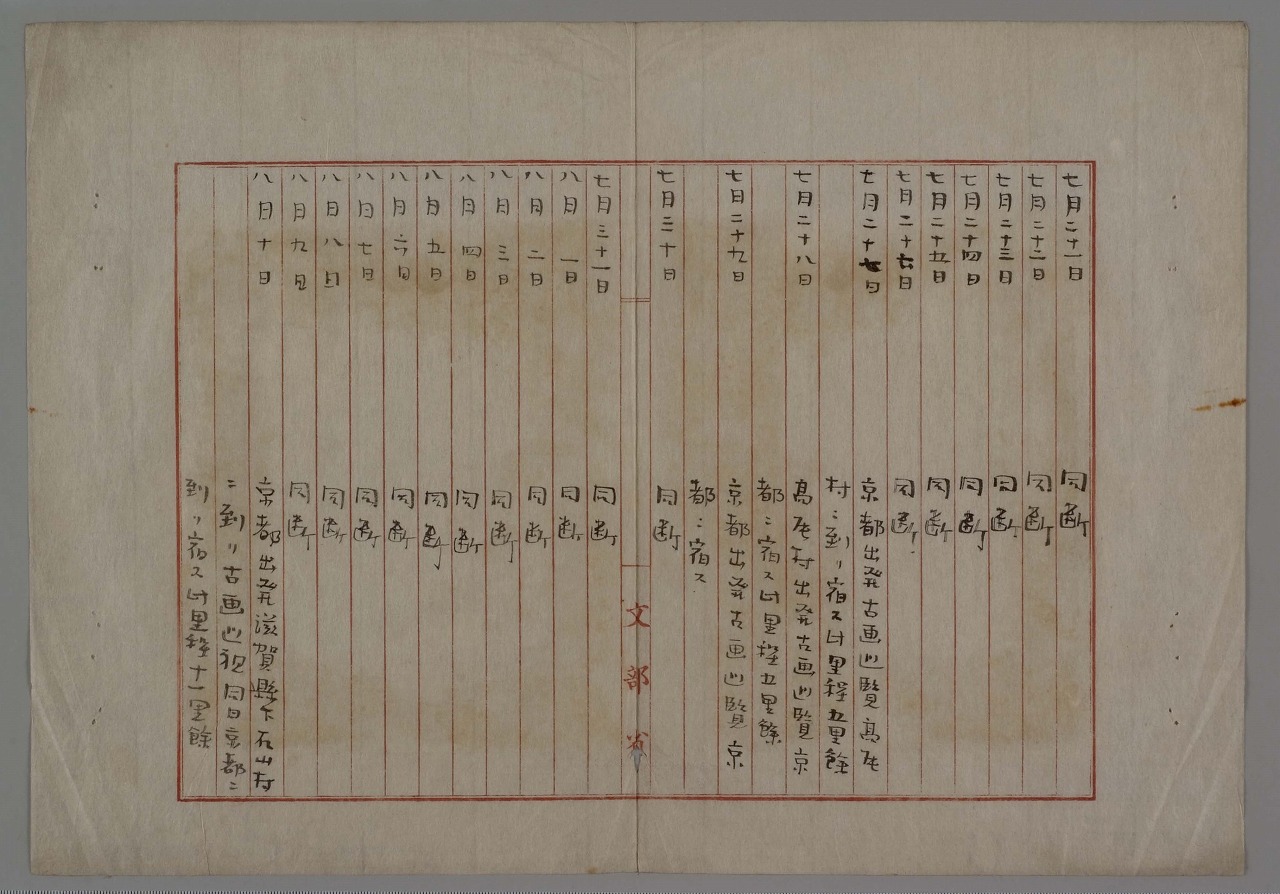 七月二十一日 同断
七月二十二日 同断
七月二十三日 同断
七月二十四日 同断
七月二十五日 同断
七月二十六日 同断
七月二十七日 京都出発古画巡覧高尾
村ニ到リ宿ス此里程五里餘
七月二十八日 高尾村出発古画巡覧京
都ニ宿ス此里程五里餘
七日二十九日 京都出発古画巡覧京
都ニ宿ス
七月三十日 同断
文部省
七月三十一日 同断
八月一日 同断
八月二日 同断
八月三日 同断
八月四日 同断
八月五日 同断
八月六日 同断
八月七日 同断
八月八日 同断
八月九日 同断
八月十日 京都出発滋賀縣下石山村
ニ到リ古画巡視同日京都ニ
到リ宿ス此里程十一里餘